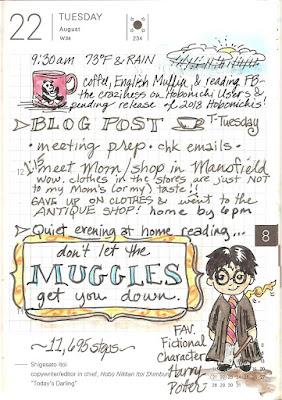 22 TUESDAY
August
W34
234
9:30am 73°F & RAIN
coffee, English Muffin, & reading FB-
the craziness on Hobonichi Users &
pending release of 2018 Hobonichis!
BLOG POST T-Tuesday
• meeting prep • chk emails •
12
1:15 meet Mom/shop in Mansfield
wow, clothes in the stores are just NOT
to my Mom's (or my) taste!!
GAVE UP ON CLOTHES & went to the
ANTIQUE SHOP! home by 6pm
Quiet evening at home reading...
8
don't let the
MUGGLES
get you down.
~11,695 steps~
FAV.
Fictional
Character
Harry
Potter
Shigesato Itoi
copywriter/editor in chief, Hobo Nikkan Itoi Shimbun
"Today's Darling"